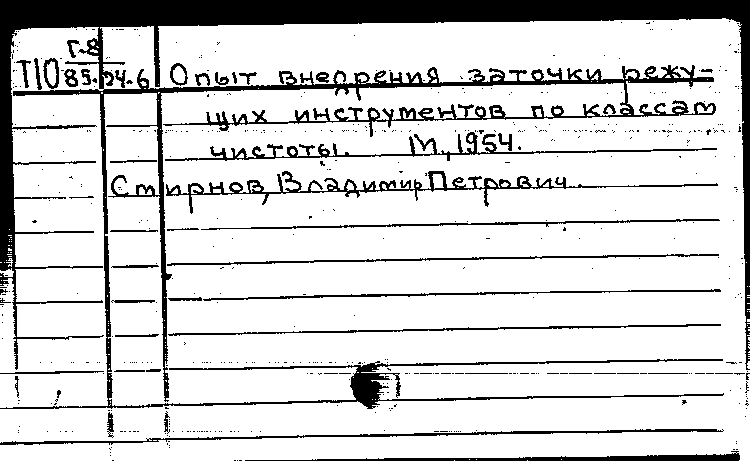 Г-8
Т10 85.04.6 Опыт внедрения заточки режу-
щих инструментов по классам
чистоты. М., 1954.
Смирнов, Владимир Петрович.